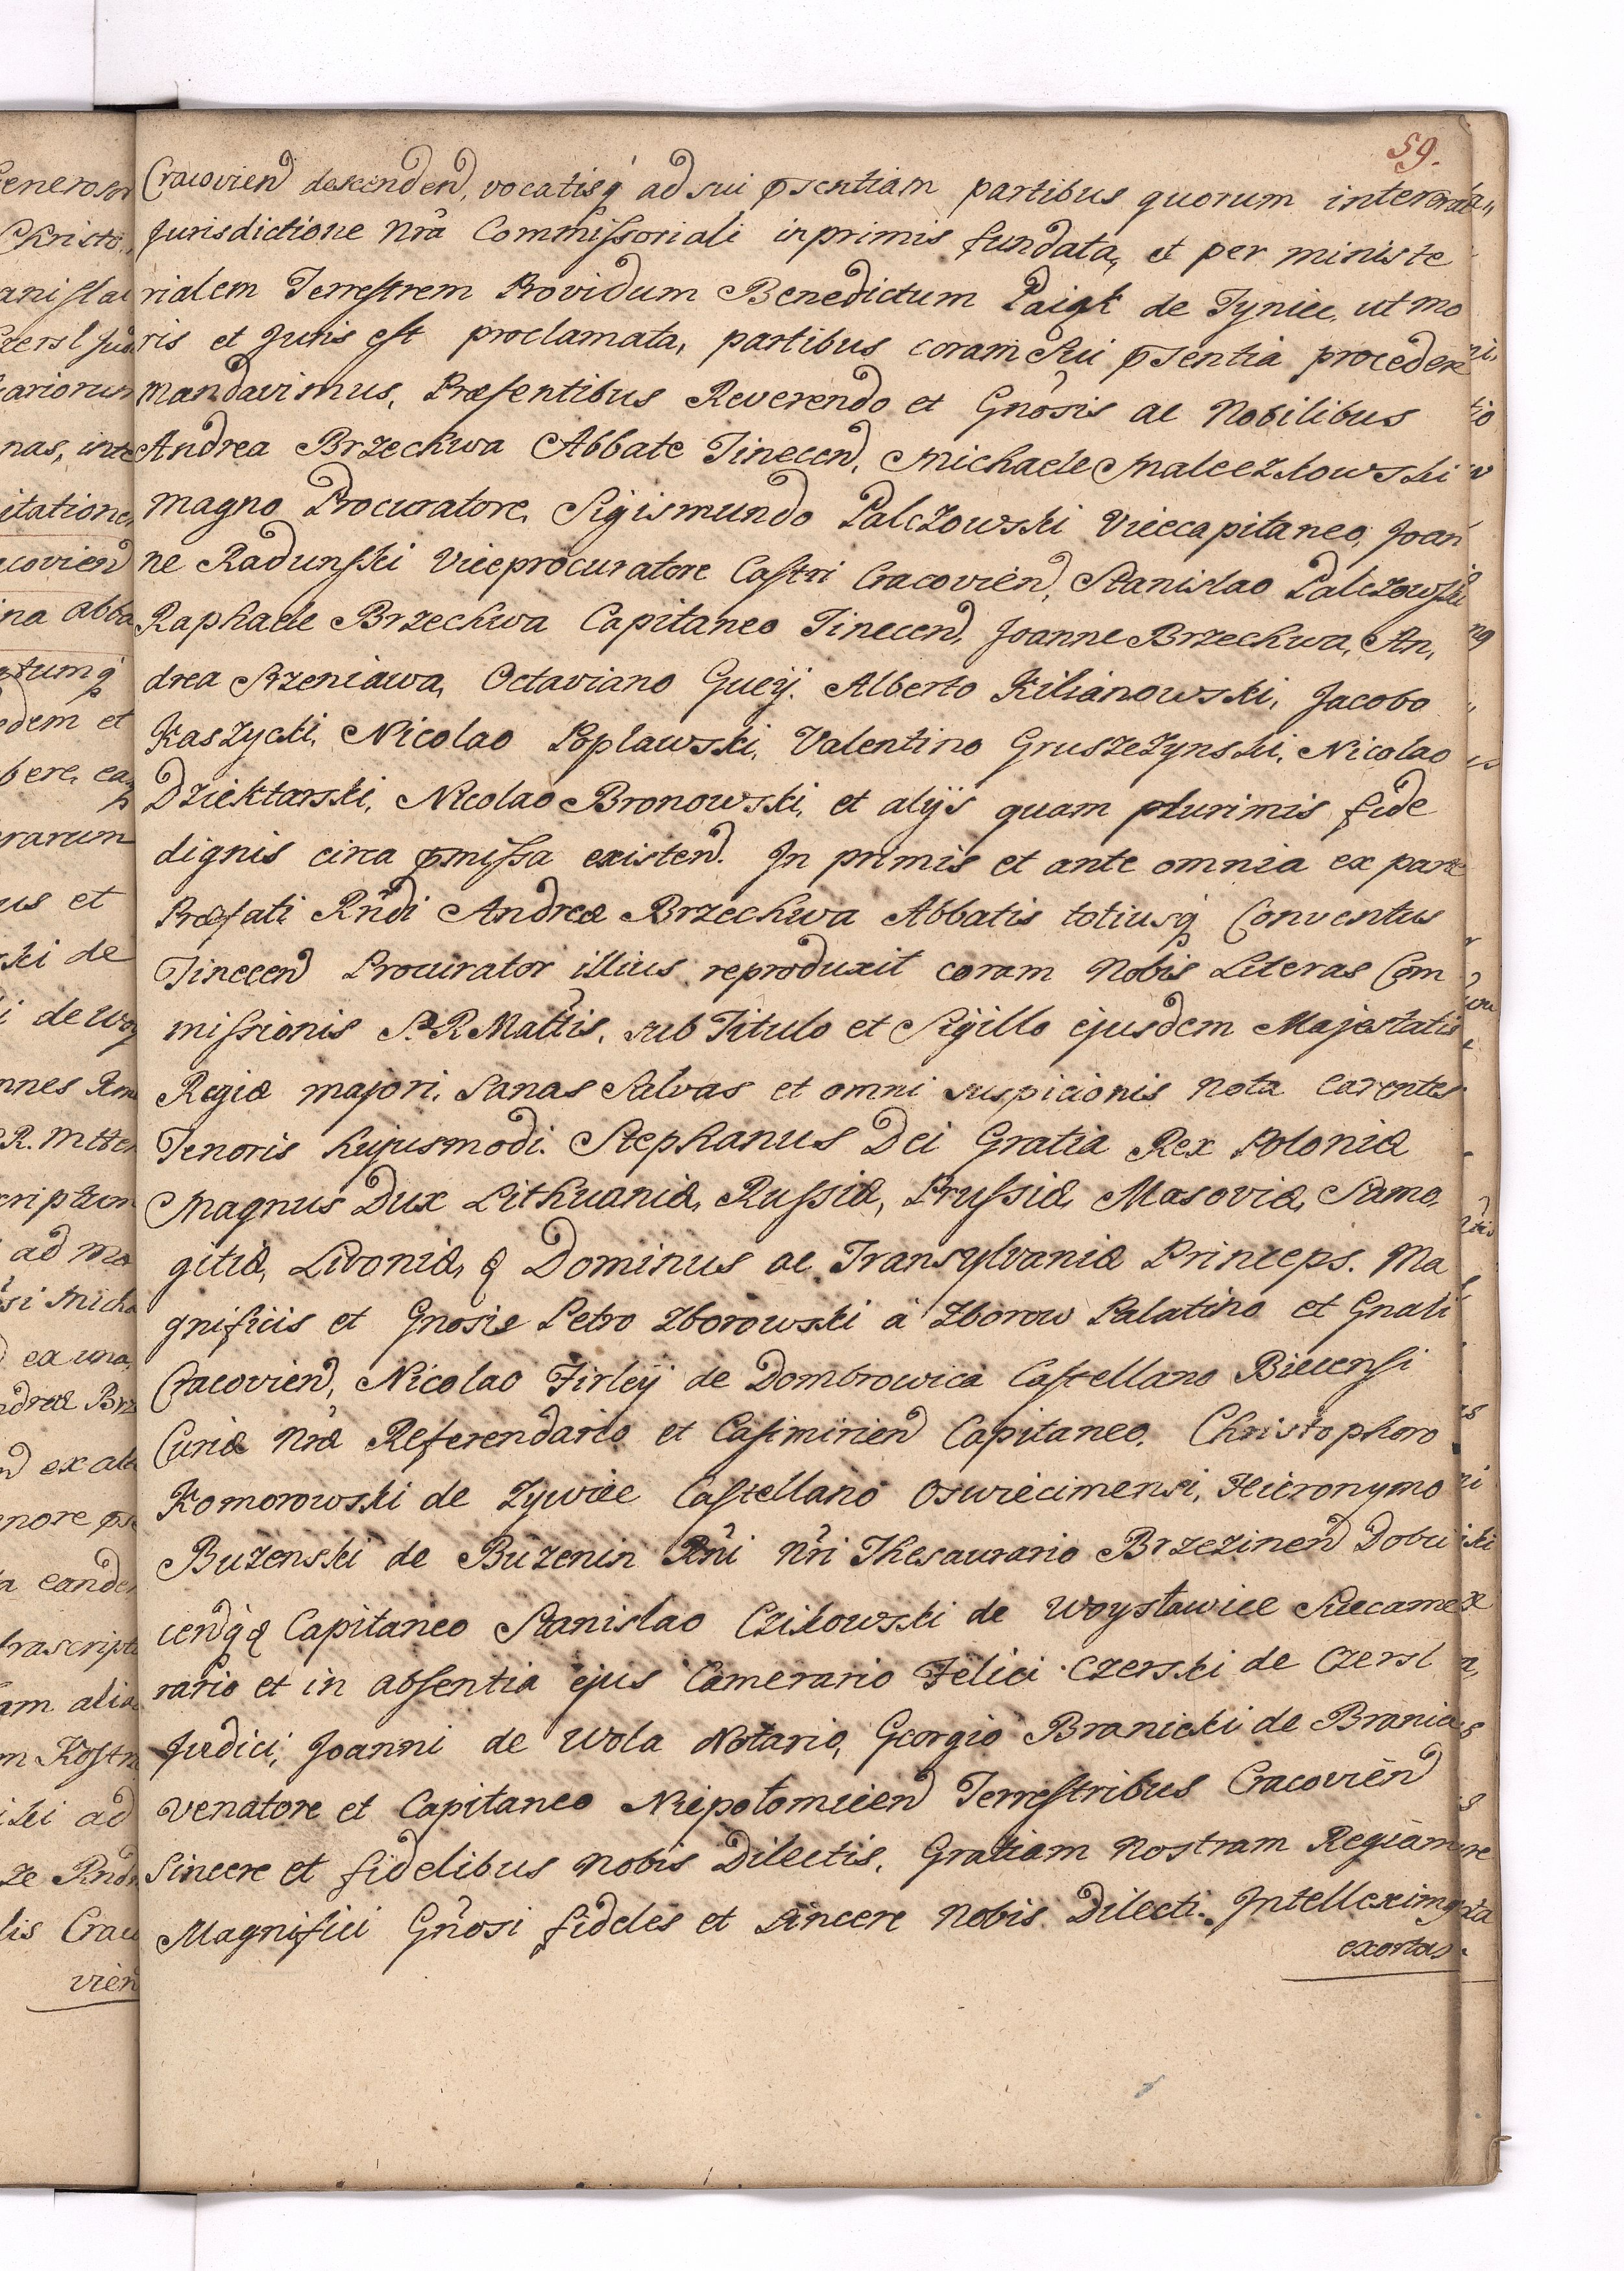 59.
Cracovien descenden, vocatisq́ ad sui pſentiam partibus quorum intererat,
Jurisdictione nrã Commiſsoriali inprimis fundata, et per ministe
rialem Terreſtrem Providum Benedictum Paigk de Tyniec, ut mo
ris et Juris eſt proclamata, partibus coram sui pſentia procedere
mandavimus, Præſentibus Reverendo et Gnõsis ac Nobilibus
Andrea Brzechwa Abbate Tinecen, Michaele Maleczkowski
magno Procuratore, Sigismundo Palczowski Vicecapitaneo, Joan
ne Radunſki Viceprocuratore Caſtri Cracovien, Stanislao Palczowſki
Raphaele Brzechwa Capitaneo Tinecen, Joanne Brzechwa, An,
drea Srzeniawa, Octaviano Gueÿ. Alberto Kilianowski, Jacobo
Kaszycki, Nicolao Poplawski, Valentino Gruszczynski, Nicolao
Dziektarski, Nicolao Bronowski, et alÿs quam plurimis fide
dignis circa pmiſsa existen. In primis et ante omnia ex parte
Præfati Rñdi Andreæ Brzechwa Abbatis totiusq́ Conventus
Tinecen Procurator illius reproduxit coram Nobis Literas Com
miſsionis S. R Mattis, sub Titulo et Sigillo ejusdem Majestatis
Regiæ majori, Sanas Salvas et omni suspicionis nota carentes
Tenoris hujusmodi. Stephanus Dei Gratia Rex Poloniæ
Magnus Dux Lithuaniæ, Ruſsiæ, Pruſsiæ Masoviæ, Samo,
gitiæ, Livoniæ, q Dominus ac Transylvaniæ Princeps. Ma
gnificis et Gnosis Petro Zborowski á Zborow Palatino et Gnali
Cracovien, Nicolao Firleÿ de Dombrowica Caſtellano Biecenſi
Curiæ Nræ Referendario et Caſimirien Capitaneo, Christophoro
Komorowski de Zywiec Caſtellano Oswiecimensi, Hieronymo
Buzenski de Buzenin Rñi Nri Thesaurario Brzezinen Dobci
cenq́q Capitaneo Stanislao Czikowski de Woysławice Succame
rario et in abſentia ejus Camerario Felici Czerski de Czersl
Judici, Joanni de Wola Notario, Georgio Branicki de Branice
Venatore et Capitaneo Niepotomicen Terreſtribus Cracovien
Sincere et fidelibus Nobis Dilectis, Gratiam Nostram Regiam
Magnifici Gnõsi fideles et sincere Nobis Dilecti. Intelleximg
exortas